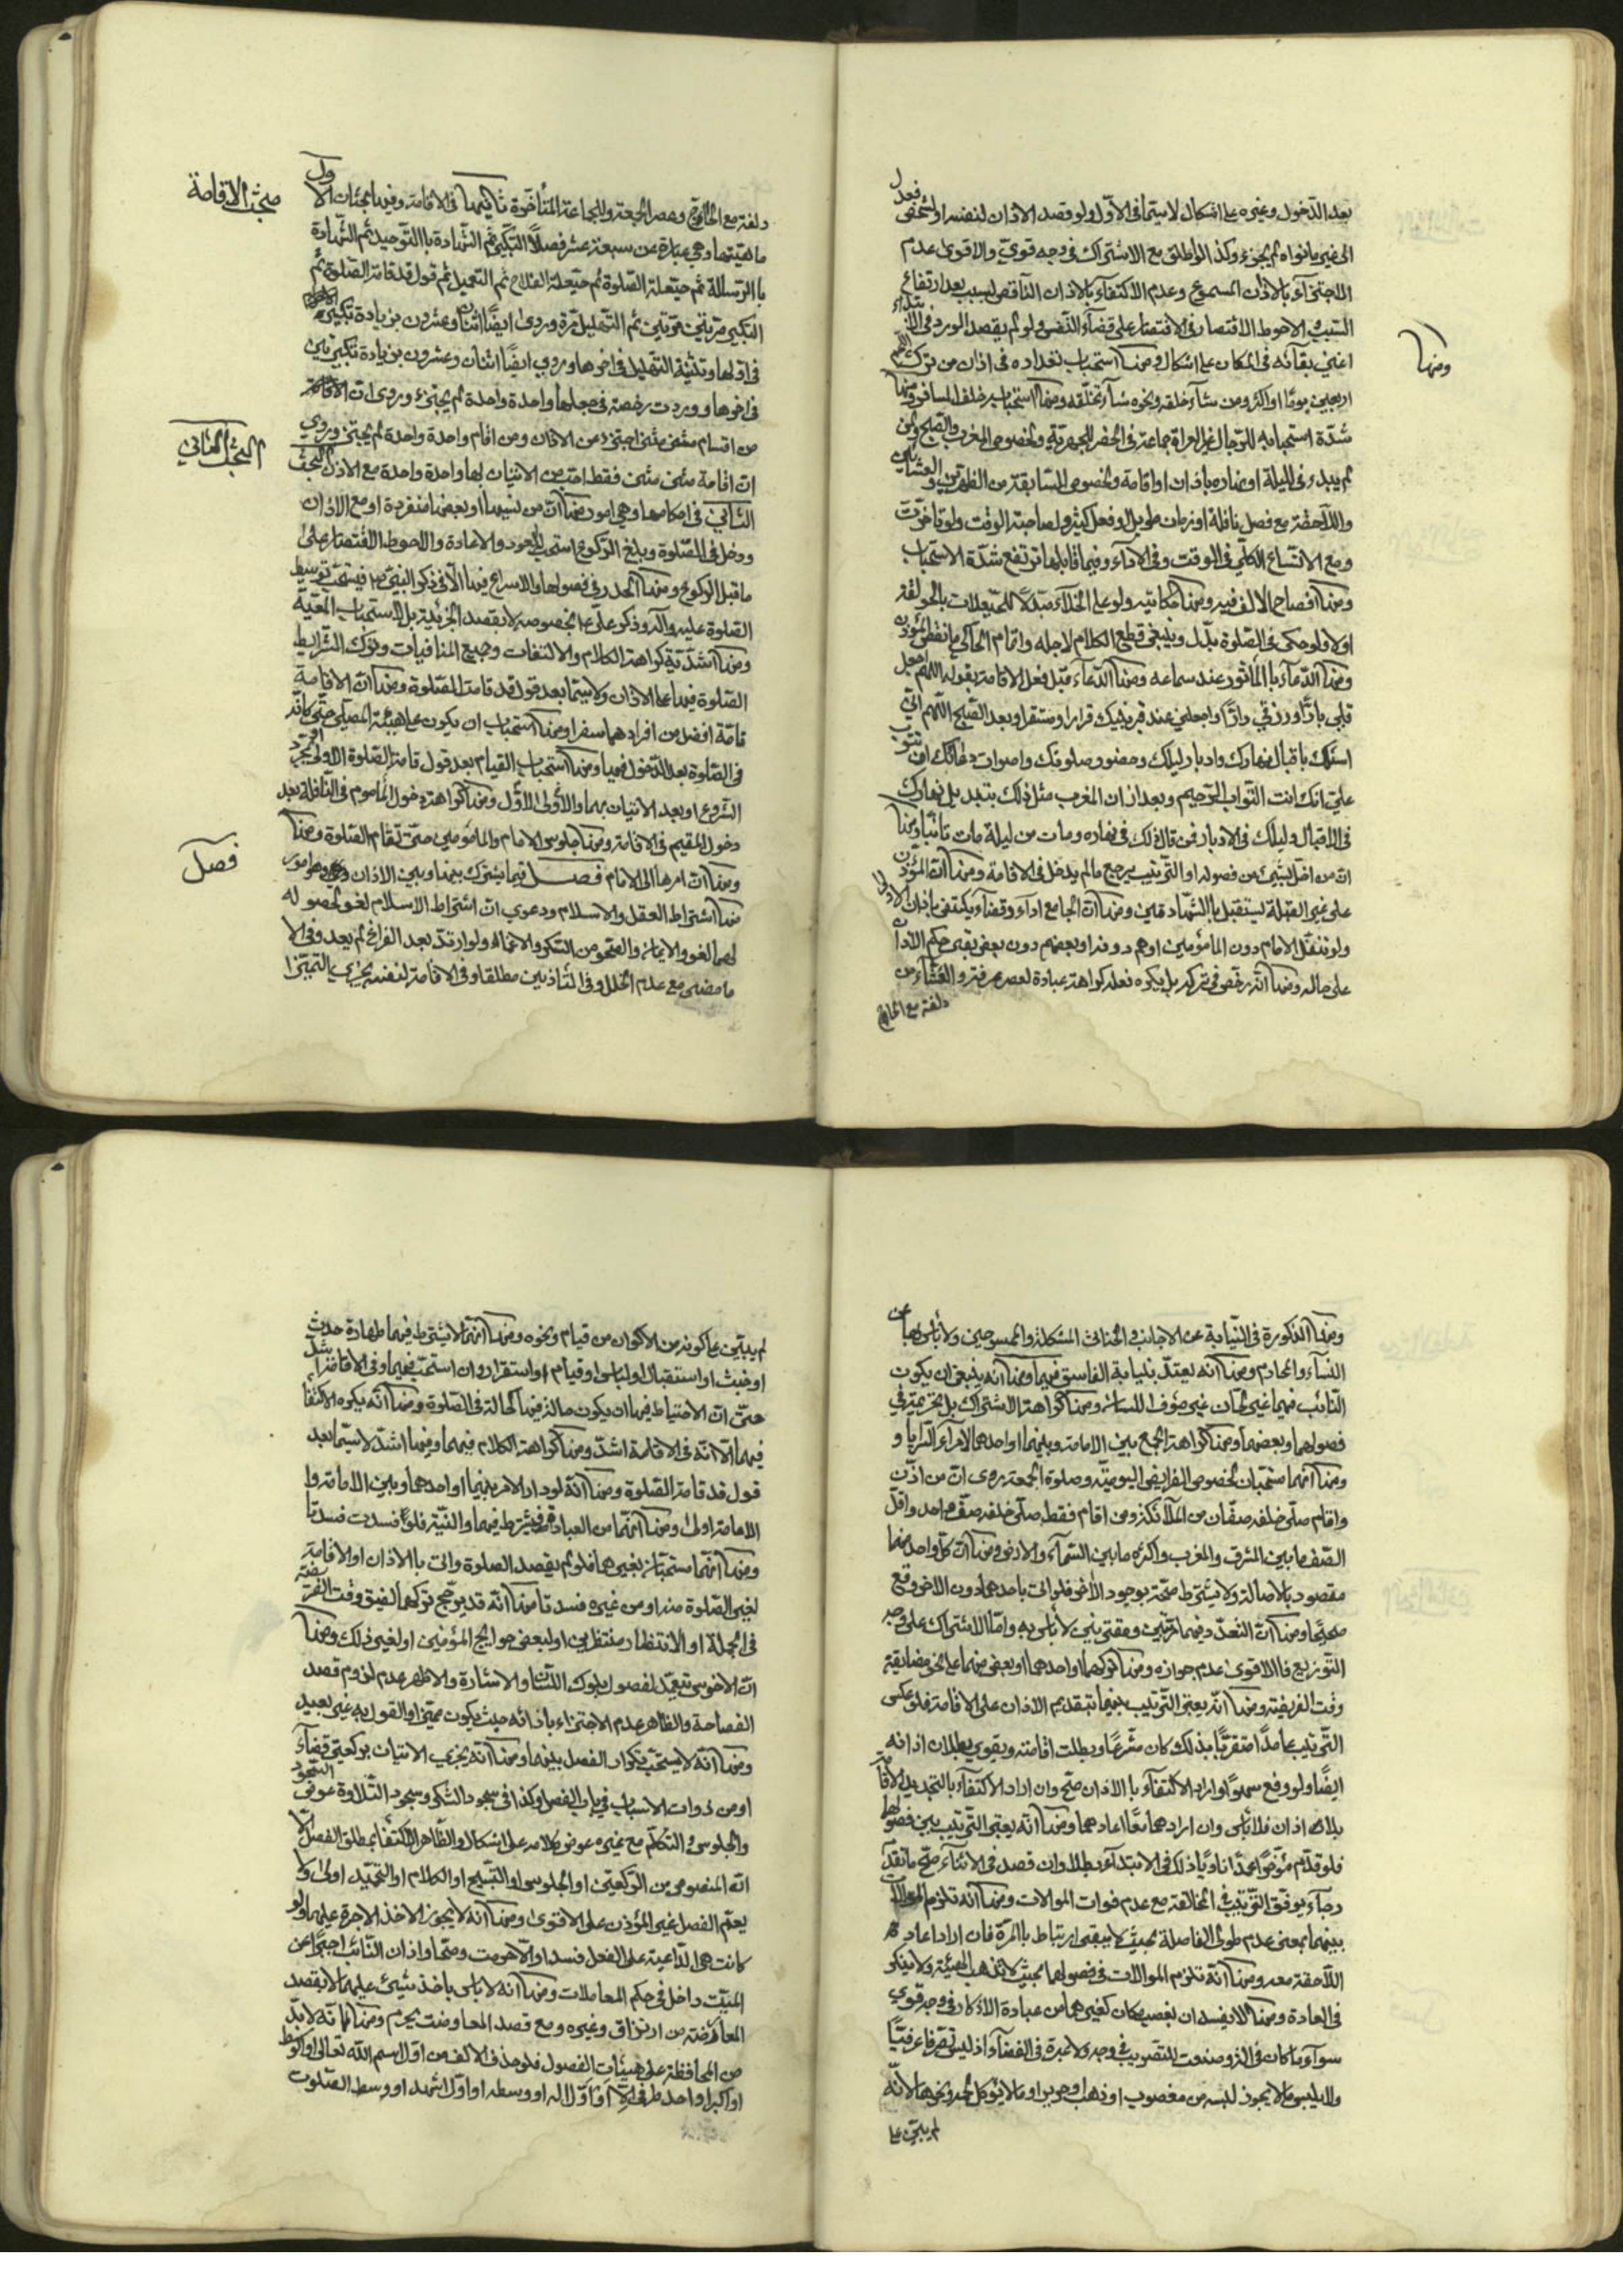 بعد الدخول وغيره على اشكال لا سيما في الاول ولو قصد الاذان لنفسه او لشخص فعدل
الى غير ما نواه لم يجزء وكذا لو اطلق مع الاشتراك في وجه قوي والاقوى عدم
الاجتزاء بالاذان المسموع وعدم الاكتفاء بالاذان الناقص لسبب بعد ارتفاع
السبب والاحوط الاقتصار في على قضاء النفس ولو لم يقصد الورود في الابتداء
اعني بقائه في المكان على اشكال ومنها استحباب تعداده في اذان من ترك اللحم
ومنها
اربعين يوما او اكثر ومن ساء خلقه ونحوه ومنها استحبابه خلف المسافر ومنها
شدة استحبابه للرجال غير العراة جماعة في الحضر للجهرية ولخصوص المغرب والصبح ولمن
لم يبدء في الليلة او نهاره باذان او اقامة ولخصوص السابقة من الظهرين والعشائين
واللاحقة مع فصل نافلة او زمان طويل او فعل كثير ولصاحبة الوقت ولو تاخرت
ومع الاتساع الكلي في الوقت وفي الاداء وفيما قابلها ترتفع شدة الاستحباب
ومنها افصاح الالف فيه ومنها حكايته ولو على الخلاء مبدلا للحيعلات بالحولقة
اولا ولو حكى في الصلوة بدل وينبغي قطع الكلام لاجله واتمام الحاكي ما نقص المؤذن
ومنها الدعاء بالماثور عند سماعه ومنها الدعاء قبل فعل الاقامة بقوله اللهم اجعل
قلبي بارا ورزقي دارا واجعلني عند قبر نبيك قرارا ومستقرا وبعد الصبح اللهم اني
اسئلك باقبال نهارك وادبار ليلك وحضور صلوتك واصوات دعائك ان تتوب
علي انك انت التواب الرحيم وبعد اذان المغرب مثل ذلك بتبديل نهارك
في الاقبال وليلك في الادبار فمن قال ذلك في نهاره ومات من ليلة مات تائبا ومنها
ان من اخل بشيء من فصوله او الترتيب يرجع ما لم يدخل في الاقامة ومنها ان المؤذن
على غير القبلة يستقبل بالشهادتين ومنها ان الجامع اداء وقضاء يكتفي باذان الاول
ولو تنفل الامام دون المامومين او هم دونه او بعضهم دون بعض بقي حكم الاذان
على حاله ومنها انه رخص في تركه بل يكره فعله كراهة عبادة لعصر عرفة والعشاء من
دلفة مع
دلفة مع وعصر الجمعة وللجماعة المتاخرة ثانيهما في الاقامة وفيها بحثان الاول
مبحث الاقامة
ماهيتها وهي عبارة عن سبعة عشر فصلا التكبير ثم الشهادة بالتوحيد ثم الشهادة
بالرسالة ثم حيعلة الصلوة ثم حيعلة الفلاح ثم التعميل ثم قول قد قامت الصلوة ثم
التكبير مرتين مرتين ثم التهليل مرة وروى ايضا اثنان وعشرون بزيادة
في اولها وتثنية التهليل في اخرها وروي ايضا اثنان وعشرون بزيادة تكبيرتين
في اخرها ووردت رخصة في جعلها واحدة واحدة لم يجتزء وروى ان الاقامة
من اقسام مثنى مثنى اجتزء من الاذان ومن اقام واحدة واحدة لم يجتز وروي
ان اقامة مثنى مثنى فقط احب من الاتيان بها واحدة واحدة مع الاذان البحث
البحث الثاني
الثاني في احكامها وهي امور منها ان من نسيها او بعضها منفردة او مع الاذان
ودخل في الصلوة وبلغ الركوع استحب العود والاعادة والاحوط الاقتصار على
ما قبل الركوع ومنها الحدر في فصولها والاسراع فيها الا في ذكر النبي ص فيستحب توسيط
الصلوة عليه وآله وذكر علي ع بخصوصه لا بقصد الجزئية بل لاستحباب المعية
ومنها شدية كراهة الكلام والالتفات وجميع المنافيات وترك الشرايط
الصلوة فيها على الاذان ولا سيما بعد قول قد قامت الصلوة ومنها ان الاقامة
تامة افضل من افرادهما سفرا ومنها استحباب ان يكون على هيئة المصلي حتى كانه
في الصلوة بعد الدخول فيها ومنها استحباب القيام بعد قول قامت الصلوة الاولى
الشروع او بعد الاتيان بهما والاولى الاول ومنها كراهة دخول الماموم في النافلة بعد
دخول المقيم في الاقامة ومنها جلوس الامام والمامومين حتى تقام الصلوة ومنها
ومنها ان امرها الى الامام فصل فيما يشترك بينها وبين الاذان وهو امور
فصل
منها اشتراط العقل والاسلام ودعوى ان اشتراط الاسلام لغو لحصوله
لهما لغو والايمان والصحو من السكر والاغماء ولو ارتد بعد الفراغ لم يعد وفي الا
ما مضى مع عدم الخلل وفي التاذين مطلقا وفي الاقامة لنفسه يجزي التميز
ومنها الذكورة في النيابة عن الاجانب والخناثى المشكلة والممسوحين ولا باس بها عن
النساء والمحارم ومنها انه يعتد بنيابة الفاسق فيهما ومنها انه ينبغي ان يكون
النائب فيهما غير لحان غير مؤف اللسان ومنها كراهة الاشتراك بل يحرم في
فصولهما وبعضها ومنها كراهة الجمع بين الامامة وبينهما او احدهما لامراء السرايا و
ومنها انهما مستحبان لخصوص الفرايض اليومية وصلوة الجمعة روى ان من اذن
واقام صلى خلفه صفان من الملائكة ومن اقام فقط صلى خلفه صف واحد واقل
الصف ما بين المشرق والمغرب واكثره ما بين السماء والارض ومنها ان كل واحد منهما
مقصود بالاصالة ولا يشترط صحته بوجود الاخر فلو اتى باحدهما دون الاخر وقع
صحيحا ومنها ان التعدد فيهما مرتبين ومقترنين لا باس به واما الاشتراك على وجه
التوزيع فالاقوى عدم جوازه ومنها تركهما او احدهما او بعض منهما على نحو مضايقة
وقت الفريضة ومنها انه يعتبر الترتيب بينهما بتقديم الاذان على الاقامة فلو عكس
الترتيب عامدا متقربا بذلك كان مشرعا وبطلت اقامته ويقوى بطلان اذانه
ايضا ولو وقع سهوا واراد الاكتفاء بالاذان صح وان اراد الاكتفاء بالتجديد للاقامة
بلا اذان فلا باس وان ارادهما معا اعادهما ومنها انه يعتبر الترتيب بين فصولها
فلو قدم مؤخرا عمدا ناويا ذلك في الابتداء بطلا وان قصد في الاثناء صح ما تقدم
رجاء يوفق الترتيب في المخالفة مع عدم فوات الموالات ومنها انه تلزم الموالات
بينهما بمعنى عدم طول الفاصلة بحيث لا يبقى ارتباط بالمرة فان اراد اعاد
اللاحقة معه ومنها انه تلزم الموالات في فصولهما بحيث لا تذهب الهيئة ولا ينكر
في العادة ومنها لا يفسدان بغصب مكان كغيرهما من عبادة الاذكار في وجه قوي
سواء ما كان في الذرو صنعت للتصويت في وجه ولا عبرة في الفضاء اذ ليس تصرفا عرفيا
ولا بلبس ما لا يجوز لبسه من مغصوب او ذهب او حرير او ما لا يؤكل لحمه ونحوها لانه
لم يبتن على
لم يبتن على كونه من الاكوان من قيام ونحوه ومنها انهما لا يشترط فيهما طهارة حدث
او خبث او استقبال او لباس او قيام او استقرار وان استحب فيهما وفي الاقامة اشد
حتى ان الاحتياط فيها ان يكون حالة فيها كحالة في الصلوة ومنها انه يكره الاكتفاء
فيهما الا انه في الاقامة اشد ومنها كراهة الكلام فيهما وفيها اشد لا سيما بعد
قول قد قامت الصلوة ومنها انه لو دار الامر بينهما او احدهما وبين الامامة
الامامة اولى ومنها انهما من العبادة فيشترط فيهما والنية فلو فسدت فسدتا
ومنها انهما مستحبان لغيرهما فلو لم يقصد الصلوة واتى بالاذان او الاقامة
لغير الصلوة منه او من غيره فسدتا ومنها انه قد يرجح تركهما لضيق وقت الفريضة
في الجملة او لانتظار منتظرين او لبعض حوايج المؤمنين او لغير ذلك ومنها
ان الاخرس تعمد لفصول بلوك اللسان والاشارة والاظهر عدم لزوم قصد
الفصاحة والظاهر عدم الاجتزاء باذانه حيث يكون مميزا والقول به غير بعيد
ومنها انه لا يستحب تكرار الفصل بينهما ومنها انه يجزي الاتيان بركعتي قضاء
او من ذوات الاسباب في باب الفصل وكذا في سجود الشكر وسجود التلاوة عوض السجود
والجلوس والتكلم مع غيره عوض كلامه على اشكال والظاهر الاكتفاء بمطلق الفصل الا
انه المنصوص من الركعتين او الجلوس او التسبيح او الكلام او التحميد اولى ولا
يعم الفصل غير المؤذن على الاقوى ومنها انه لا يجوز الاخذ الاجرة عليهما ولو
كانت هي الداعية على الفعل فسدا والا حرمت وصحا واذان النائب اجيرا عن
الميت داخل في حكم المعاملات ومنها انه لا باس باخذ شيء عليهما لا بقصد
المعاوضة من ارتزاق وغيره ومع قصد المعاوضت يحرم ومنها انه لا بد
من المحافظة على هيئات الفصول فلو حذف الالف من اول اسم الله تعالى او الوسط
او اكبر او احد طرفي الا او اول اله او وسطه او اول اشهد او وسط الصلوت